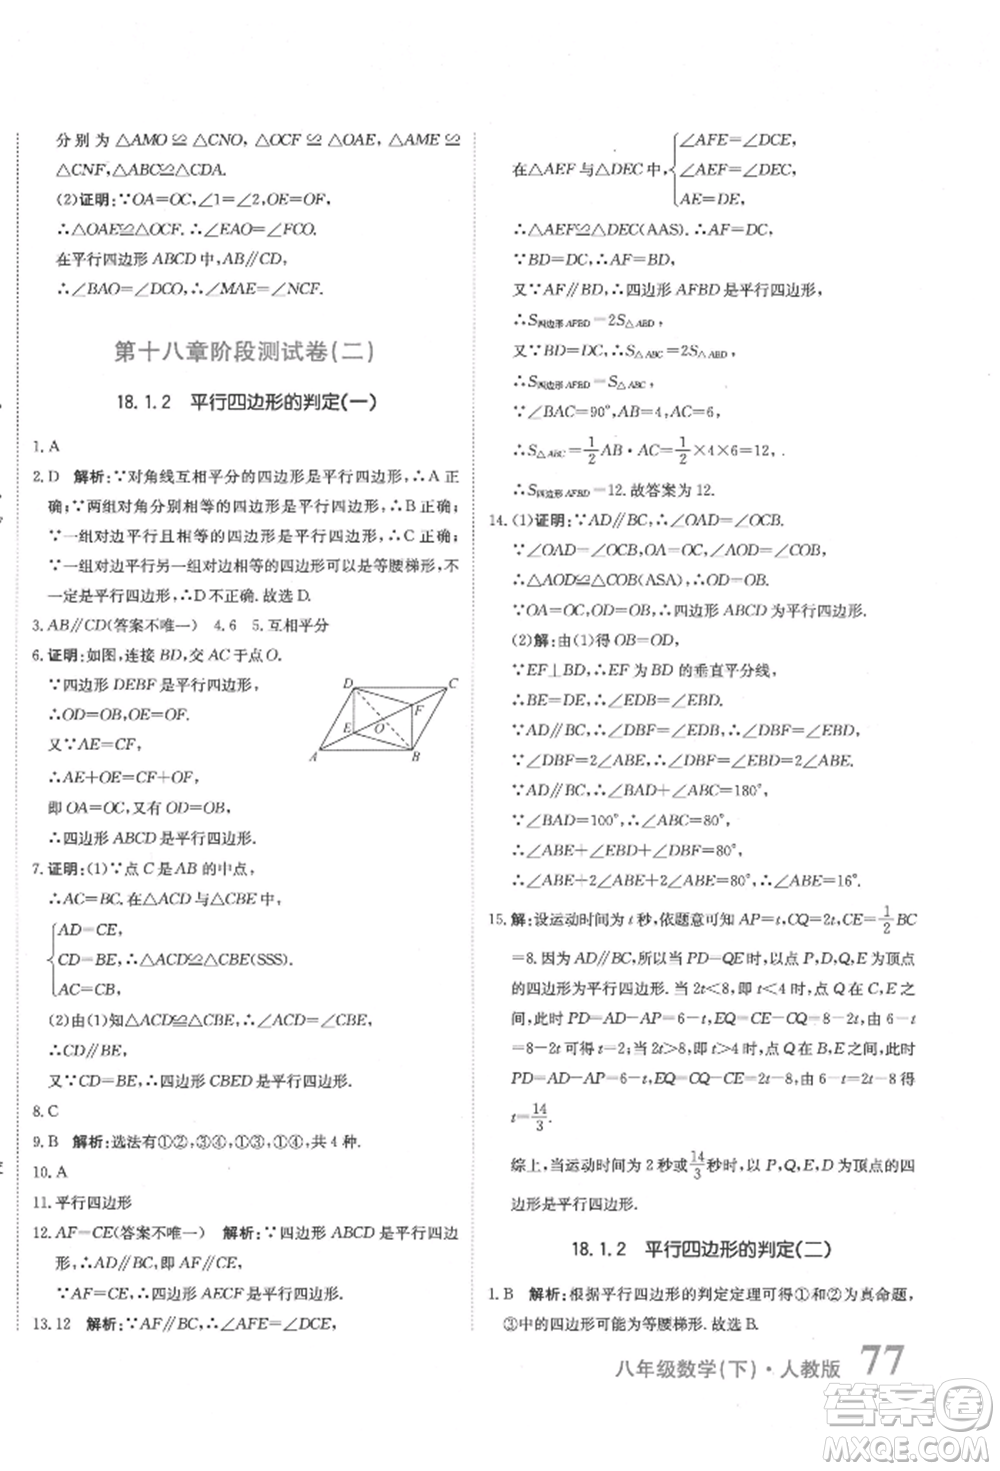 分别为△AMO≌△CNO,△OCF≌△OAE,△AME≌
△CNF,△ABC≌△CDA.
(2)证明:∵OA=OC,∠1=∠2,OE=OF,
∴△OAE≌△OCF,∴∠EAO=∠FCO.
在平行四边形 ABCD 中,AB∥CD,
∴∠BAO=∠DCO,∴∠MAE=∠NCF.
第十八章阶段测试卷(二)
18.1.2 平行四边形的判定(一)
1. A
2. D 解析:∵对角线互相平分的四边形是平行四边形,∴A 正
确;∵两组对角分别相等的四边形是平行四边形,∴B 正确;
∵一组对边平行且相等的四边形是平行四边形,∴C 正确;
∵一组对边平行另一组对边相等的四边形可以为等腰梯形,不
一定是平行四边形,∴D 不正确.故选 D.
3. AB∥CD(答案不唯一) 4. 6 5. 互相平分
6. 证明:如图,连接 BD,交 AC 于点 O.
∵四边形 DEBF 是平行四边形,
∴OD=OB,OE=OF.
又∵AE=CF,
∴AE+OE=CF+OF,
即 OA=OC,又 OD=OB,
∴四边形 ABCD 是平行四边形.
D C F E O A B
7. 证明:(1)∵点 C 是 AB 的中点,
∴AC=BC.在△ACD 与△CBE 中,
AD=CE,
CD=BE,∴△ACD≌△CBE(SSS).
AC=CB,
(2)由(1)知△ACD≌△CBE,∴∠ACD=∠CBE,
∴CD∥BE.
又∵CD=BE,∴四边形 CBED 是平行四边形.
8. C
9. B 解析:选法有①②,③④,①③,②④,共 4 种.
10. A
11. 平行四边形
12. AF=CE(答案不唯一) 解析:∵四边形 ABCD 是平行四边
形,∴AD∥BC,即 AF∥CE,
∵AF=CE,∴四边形 AECF 是平行四边形.
13. 12 解析:∵AF∥BC,∴∠AFE=∠DCE,
∠AFE=∠DCE,
在△AEF 与△DEC 中, ∠AEF=∠DEC,
AE=DE,
∴△AEF≌△DEC(AAS).∴AF=DC,
∵BD=DC,∴AF=BD,
又∵AF∥BD,∴四边形 AFBD 是平行四边形,
∴S四边形AFBD=2S△ABD,
又∵BD=DC,∴S△ABC=2S△ABD,
∴S四边形AFBD=S△ABC,
∵∠BAC=90°,AB=4,AC=6,
∴S△ABC=1/2 AB·AC=1/2×4×6=12,
∴S四边形AFBD=12.故答案为 12.
14. (1)证明:∵AD∥BC,∴∠OAD=∠OCB.
∵∠AOD=∠COB,OA=OC,
∴△AOD≌△COB(ASA),∴AD=CB.
∵OA=OC,∴四边形 ABCD 为平行四边形.
(2)解:由(1)得 OB=OD,
∵EF⊥BD,∴EF 为 BD 的垂直平分线,
∴BE=DE,∴∠EBD=∠EDB.
∵AD∥BC,∴∠DBF=∠EDB,
∴∠DBF=∠EBD=2∠ABE,
∵AD∥BC,∴∠BAD+∠ABC=180°,
∵∠BAD=100°,∴∠ABC=80°,
∴∠ABE+∠EBD+∠DBF=80°,
∴∠ABE+2∠ABE+2∠ABE=80°,∴∠ABE=16°.
15. 解:设运动时间为 t 秒,依题意可知 AP=t,CQ=2t,CE=1/2 BC
=8.因为 AD∥BC,所以当 PD=QE 时,以点 P,Q,E,D 为顶点
的四边形为平行四边形.当 2t<8,即 t<4 时,点 Q 在 C,E 之
间,此时 PD=AD-AP=6-t,EQ=CE-CQ=8-2t,由 6-t
=8-2t 可得 t=2;当 8<2t<16 且 t<6 时,点 Q 在 B,E 之间,
此时 PD=AD-AP=6-t,EQ=CQ-CE=2t-8,由 6-t=2t-8 可得
t=14/3.
综上,当运动时间为 2 秒或14/3秒时,以点 P,Q,E,D 为顶点的四
边形是平行四边形.
18.1.2 平行四边形的判定(二)
1. B 解析:根据平行四边形的判定定理可得①和②为真命题,
③中的四边形可能为等腰梯形.故选 B.
八年级数学(下)·人教版 77
答案圈
MXQE.COM